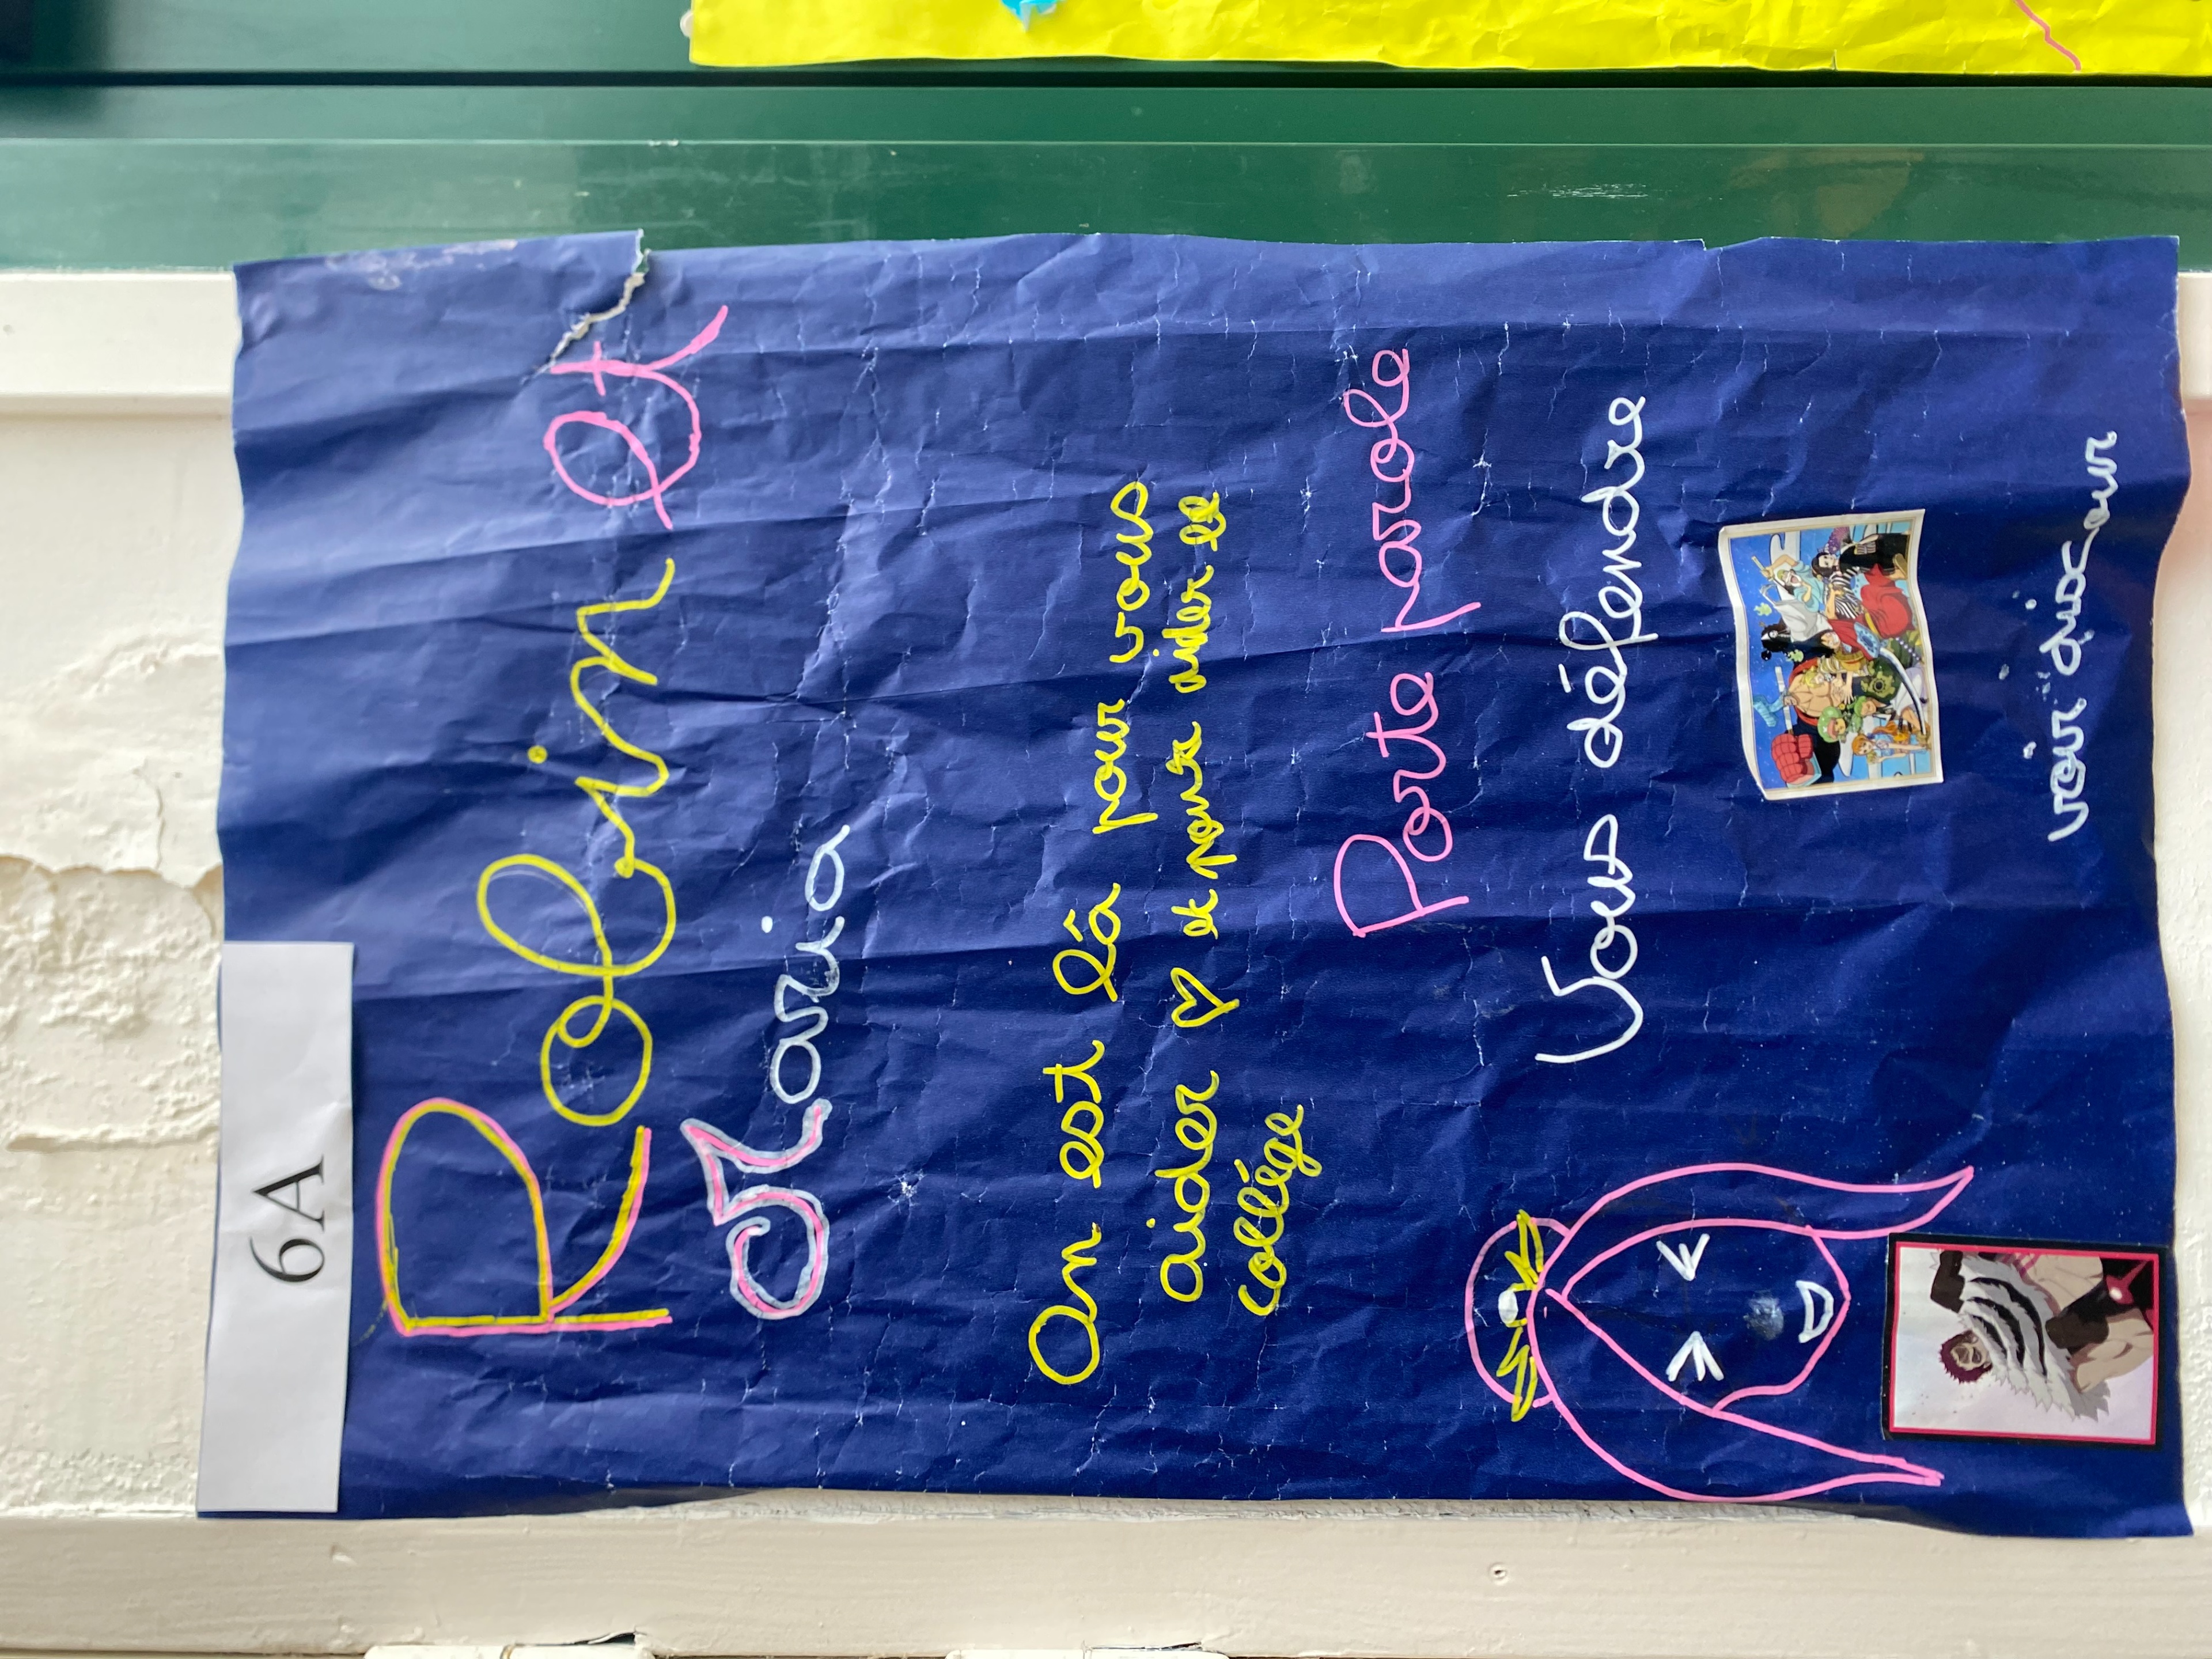 6A
Robin et
Maria
On est là pour vous
aider ♡ et pour aider le
collége
Porte parole
Vous défendre
voir discour